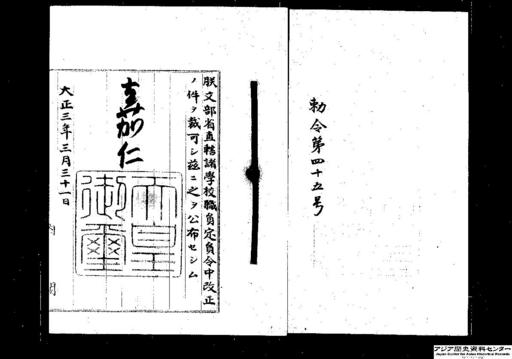 勅令第四十五号
朕文部省直轄諸學校職員定員令中改正
ノ件ヲ裁可シ茲ニ之ヲ公布セシム
嘉仁
天皇
御璽
大正三年三月三十一日
内閣
アジア歴史資料センター
Japan Center for Asian Historical Records